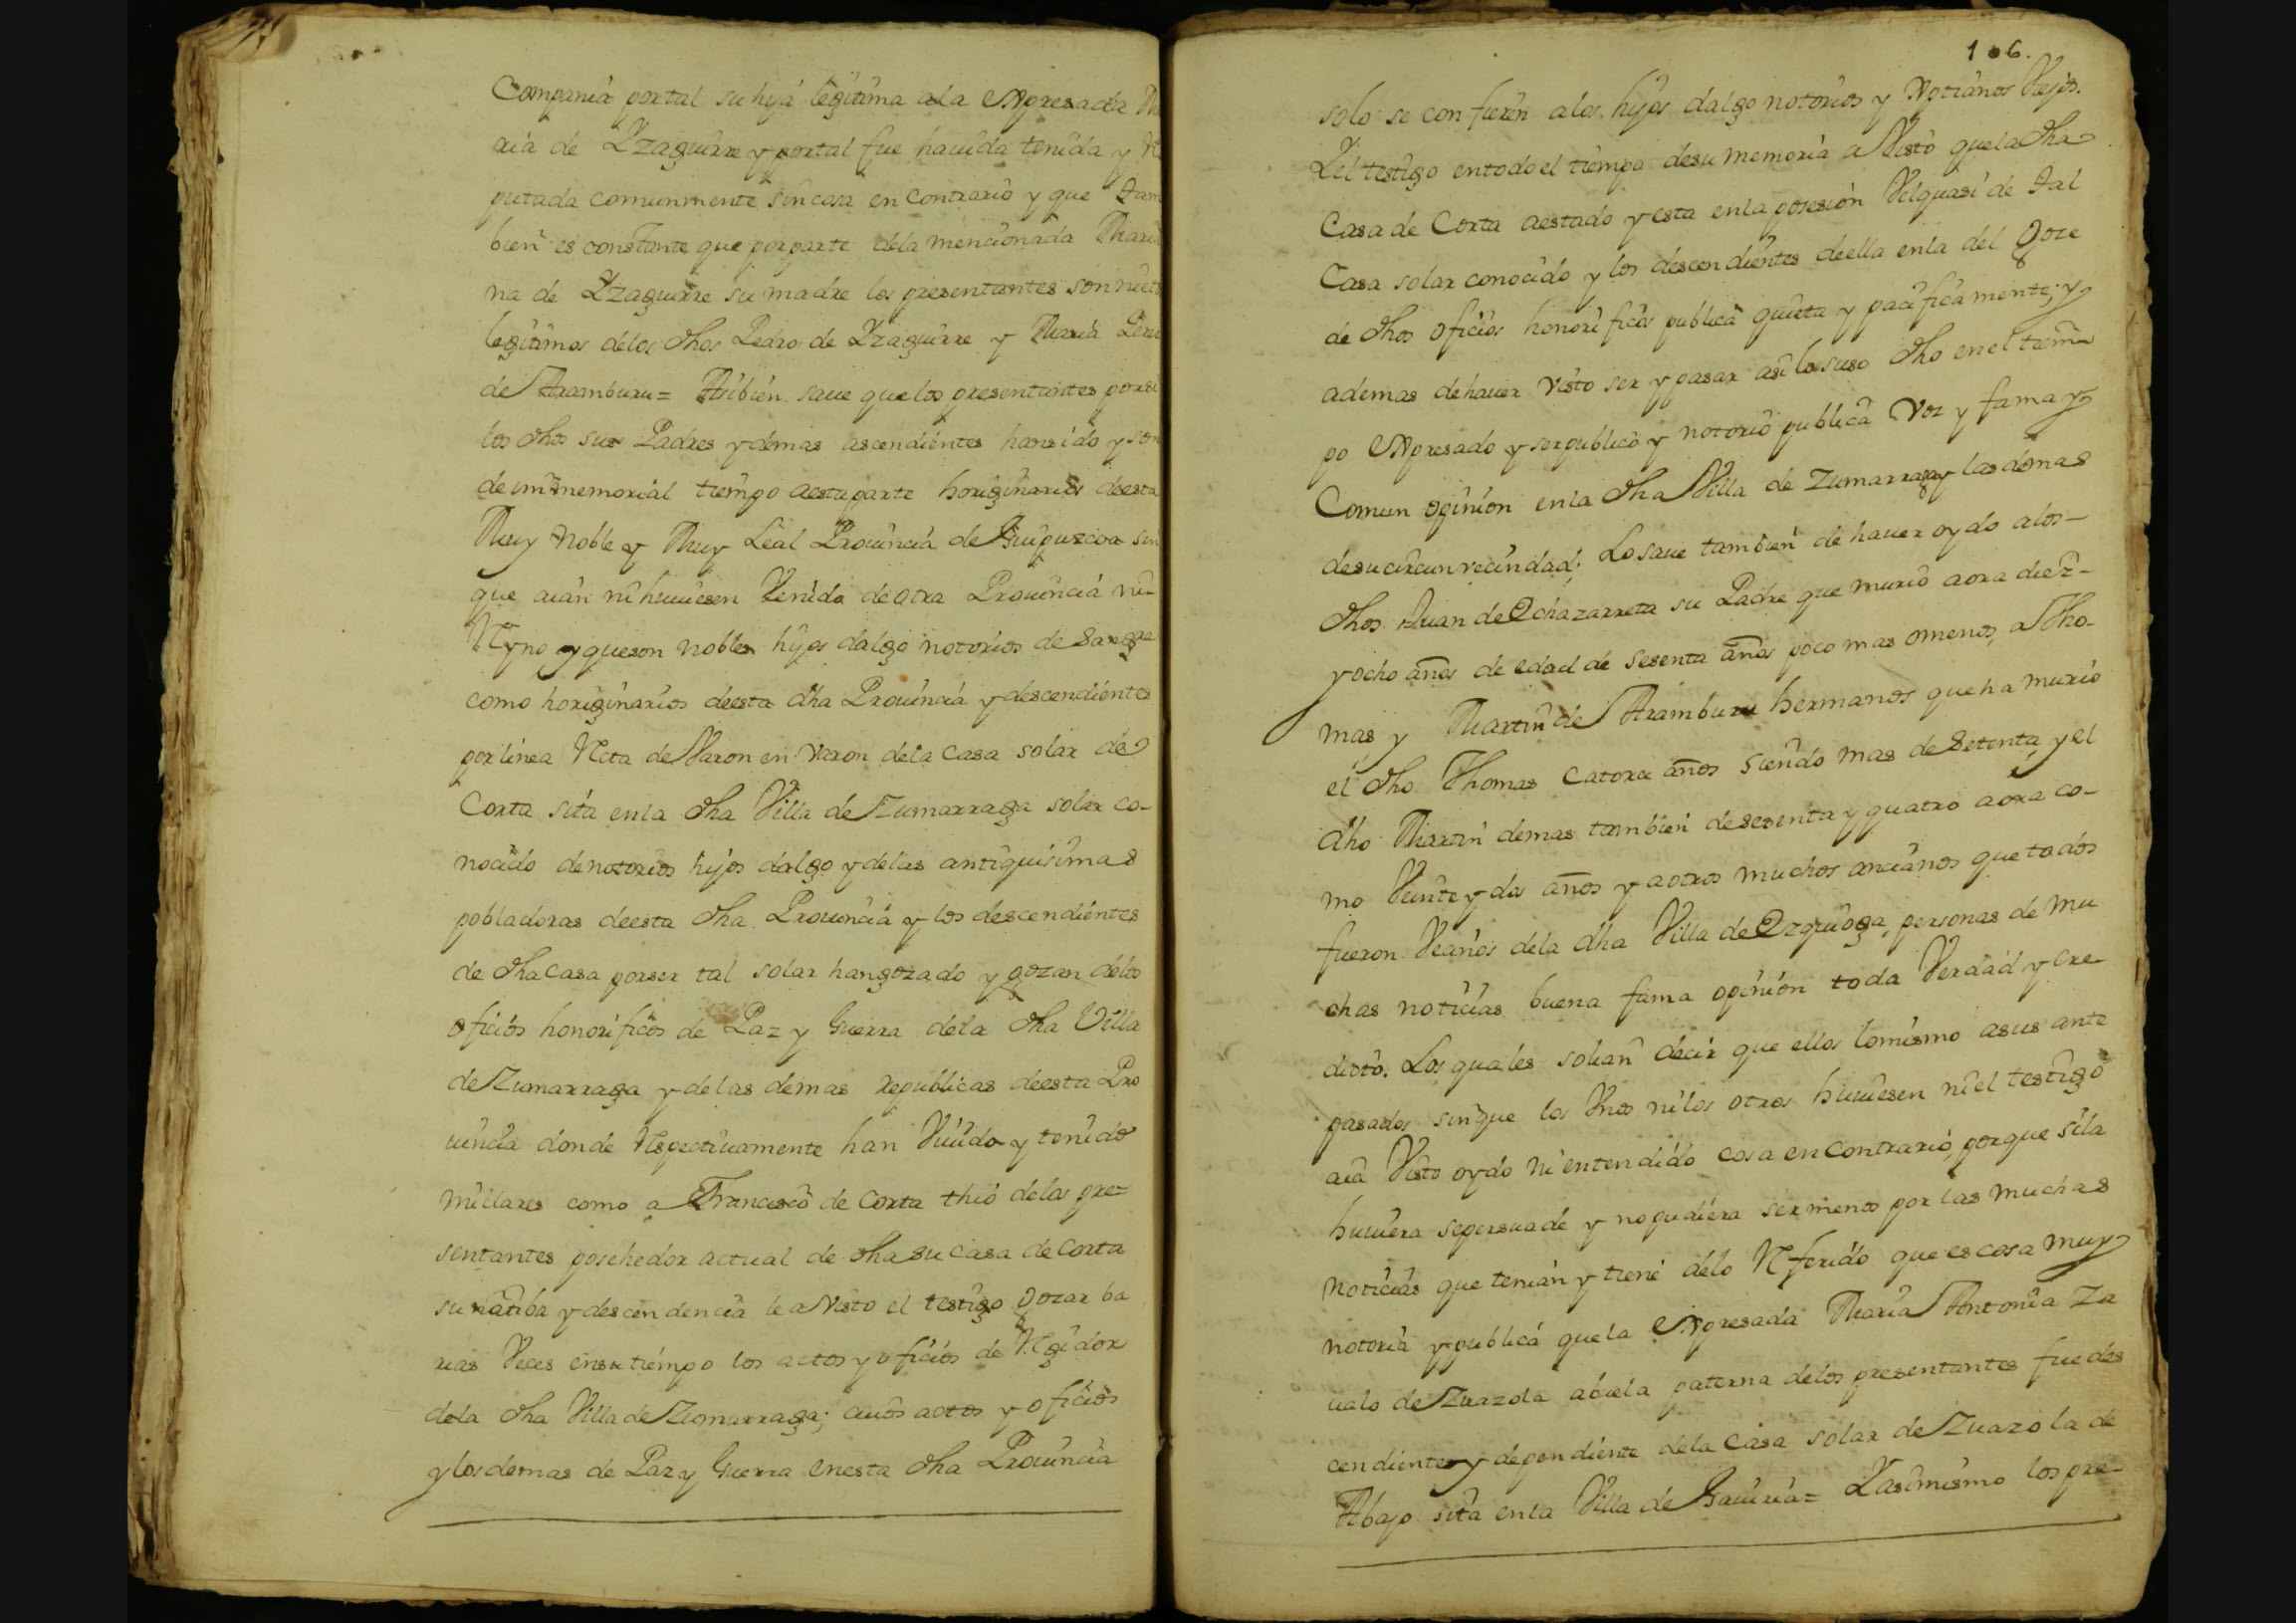 Compania por tal su hija legitima a la expresada Ma
ria de Yzaguirre y portal fue hauida tenida y Re
putada comunmente sin cosa en contrario y que tam
bien es constante que por parte dela mencionada Maria
na de Yzaguirre su madre los presentantes son nieto
legitimos delos dhos Pedro de Yzaguirre y Maria Perez
de Aramburu= Asibien saue que los presentantes por si
los dhos sus Padres y demas ascendientes han sido y son
de immemorial tiempo aesta parte horiginarios deesta
Muy Noble y Muy Leal Prouincia de Guipuzcoa sin
que aian ni huuiesen Venido de otra Prouincia ni-
Reyno y que son nobles hijos dalgo notorios de Sangre
como horiginarios deesta dha Prouincia y descendientes
por linea Recta de Varon en varon dela casa solar de
Corta sita enla dha Villa de Zumarraga solar co-
nocido denotorios hijos dalgo y delas antiquisimas
pobladoras deesta dha Prouincia y los descendientes
de dha casa por ser tal solar han gozado y gozan delos
oficios honorificos de Paz y Guerra dela dha Villa
de Zumarraga y de las demas republicas deesta Pro
uincia donde Respectiuamente han Viuido y tenido
millares como a Francisco de Corta thio delos pre-
sentantes posehedor actual de dha su casa de Corta
su natiba y descendencia le a visto el testigo gozar ba
rias Veces en su tiempo los actos y oficios de Regidor
dela dha Villa de Zumarraga; cuios actos y oficios
y los demas de Paz y Guerra enesta dha Prouincia
106.
solo se confieren alos hijos dalgo notorios y xptianos Viejos.
Y el testigo entodo el tiempo desu memoria a Visto quela dha
Casa de Corta aestado y esta enla posesion Velquasi de tal
Casa solar conocido y los descendientes deella enla del goze
de dhos oficios honorificos publica quieta y pacificamente; y
ademas dehauer visto ser y pasar asi lo suso dho en el tiem-
po expresado y ser publico y notorio publica voz y fama y
Comun opinion enla dha Villa de Zumarraga y las demas
desu circunvecindad; Lo saue tambien de hauer oydo alos-
dhos Juan de Ochazarreta su Padre que murio aora diez-
y ocho años de edad de sesenta años poco mas omenos, a Tho-
mas y Martin de Aramburu hermanos que ha murio
el dho Thomas catorce años siendo mas de Setenta, y el
dho Martin demas tambien de sesenta y quatro aora co-
mo Veinte y dos años y aotros muchos ancianos que todos
fueron Vecinos dela dha Villa de Ezquioga, personas de mu
chas noticias buena fama opinion toda Verdad y cre-
dicto. Los quales solian decir que ellos lo mismo asus ante
pasados sinque los Unos nilos otros huuiesen niel testigo
aia Visto oydo ni entendido cosa en contrario, porque sila
huuiera sepersuade y no pudiera ser menos por las muchas
noticias que tenian y tiene delo Referido que es cosa muy
notoria y publica quela expresada Maria Antonia Za
ualo de Zuazola abuela paterna delos presentantes fue des
cendiente y dependiente dela Casa solar de Zuazola de
Abajo sita enla Villa de Gauiria= Y asimismo los pre-